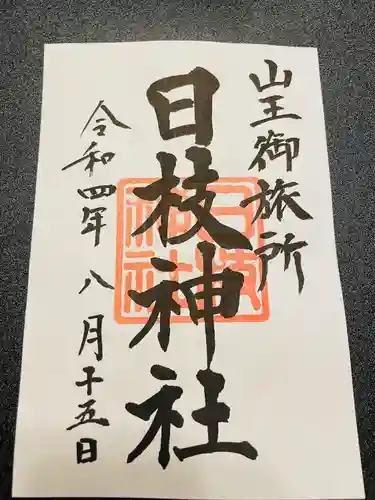 山王御旅所
日枝神社
令和四年八月十五日
日枝神社